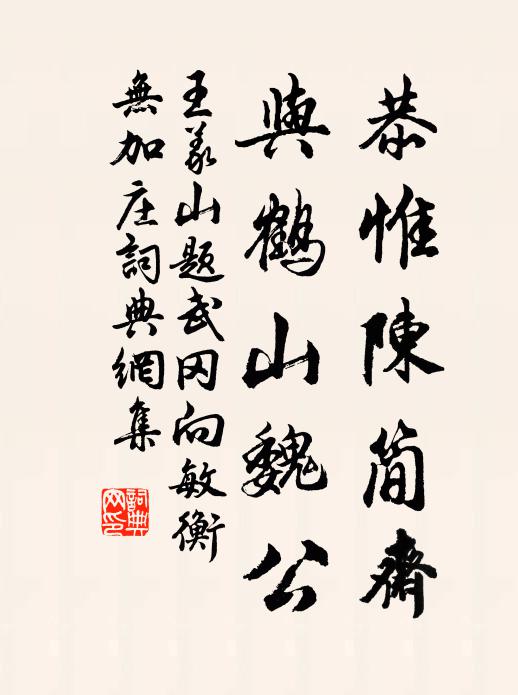 恭惟陳簡齋
與鶴山魏公
王義山題武冈向敏衡
無加庄詞典網集
詞典網印